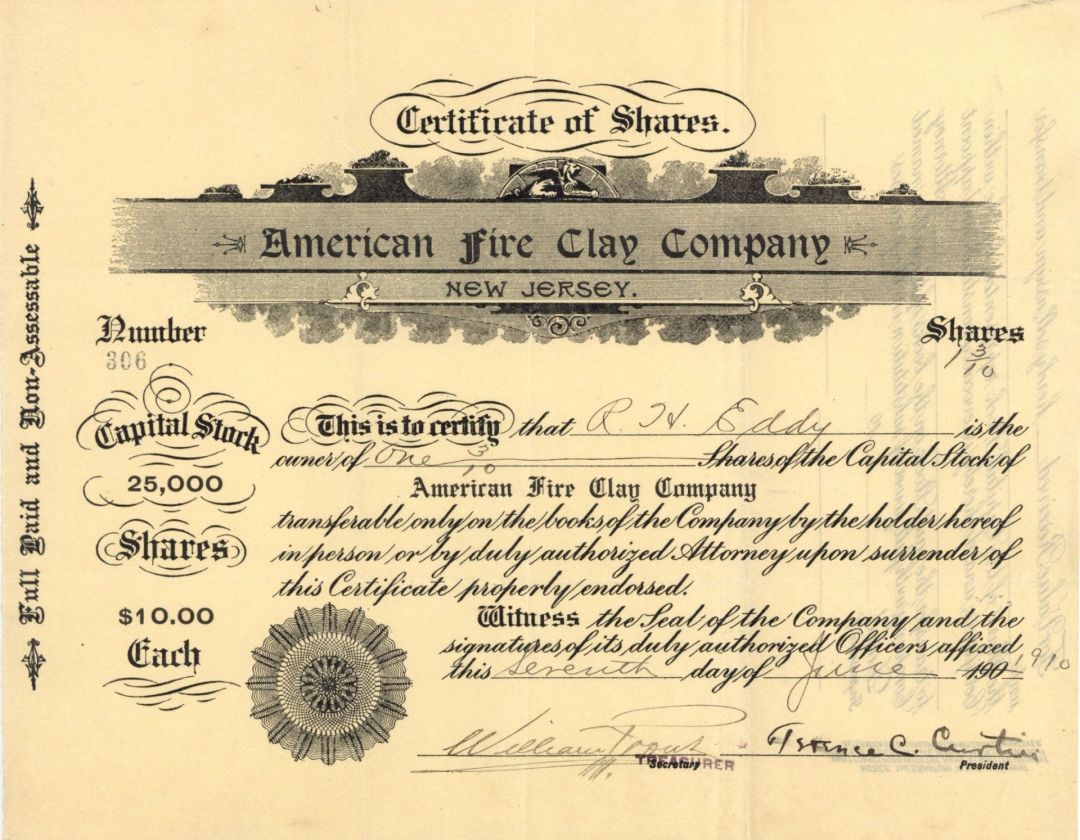 Certificate of Shares.
American Fire Clay Company
NEW JERSEY.
Number
306
Shares
1 3/10
Full Paid and Non-Assessable
Capital Stock
25,000
Shares
$10.00
Each
This is to certify that R. H. Eddy is the
owner of One 3/10 Shares of the Capital Stock of
American Fire Clay Company
transferable only on the books of the Company by the holder hereof
in person or by duly authorized Attorney upon surrender of
this Certificate properly endorsed.
Witness the Seal of the Company and the
signatures of its duly authorized Officers affixed
this seventh day of June 190 1910
William Terence C. Curtin
TREASURER
Secretary
President